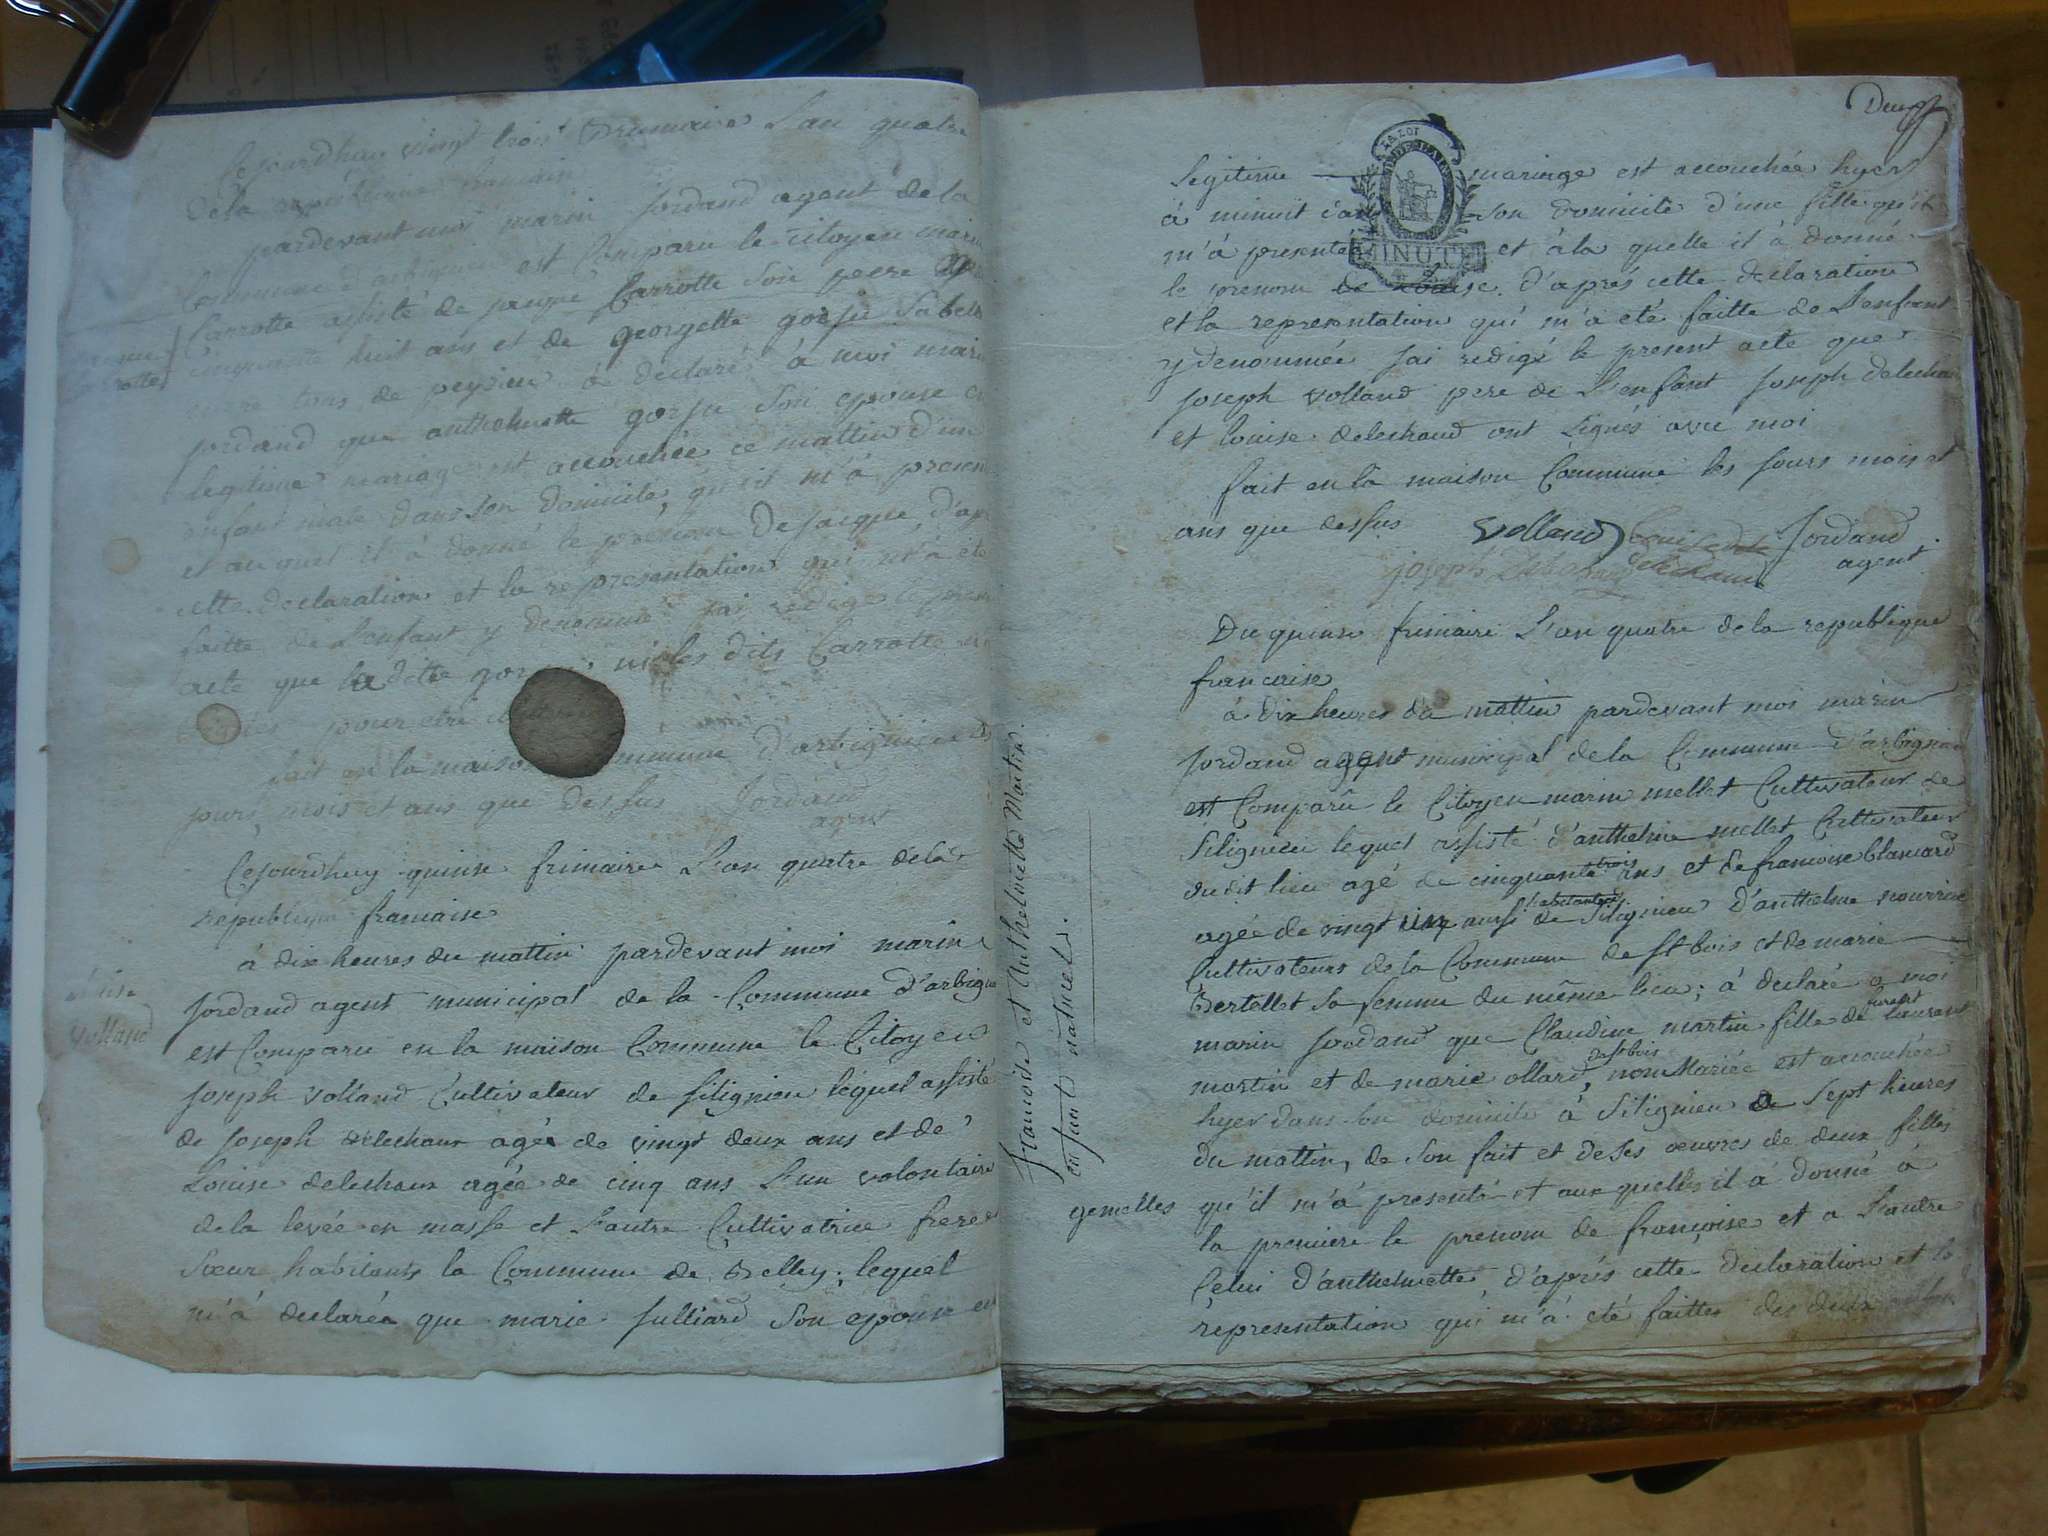 Cejourdhuy vingt trois Brumaire L'an quatre
de la republique francaise
pardevant moi marin Jordand agent de la
Commune d'arbignieu est Comparu le Citoyen marin
Carrotte assisté de jacque Carrotte son pere agé
cinquante huit ans et de georgette gorju sa belle
mere tous de peyzieu à declaré à moi marin
jordand que anthelmette gorju son epouse en
legitime mariage est accouchée ce mattin d'un
enfant male dans son domicile, qu'il m'à present
et auquel il à donné le prénom De jacque, d'apr
cette declaration et la representation qui m'à été
faitte de L'enfant y denommé jai redigé le present
acte que la ditte gorju ni les dits Carrotte
pour etre
fait en la maison Commune d'arbignieu les
jours, mois et ans que dessus Jordand
agent
Cejourdhuy quinse frimaire L'an quatre de la
republique francaise
à dix heures du mattin pardevant moi marin
Jordand agent municipal de la Commune d'arbigni
Louise
Volland
est Comparu en la maison Commune le Citoyen
Joseph Volland Cultivateur de silignieu lequel assisté
de Joseph delechaux agé de vingt deux ans et de
Louise delechaux agée de cinq ans L'un volontaire
de la levée en masse et L'autre Cultivatrice frere et
Sœur habitants la Commune de Belley; lequel
m'à declaréa que marie Julliard Son epouse en
Deux
LA LOI
MINUTE
Legitime mariage est accouchée hyer
à minuit dans son domicile d'une fille qu'il
m'à presenté et à la quelle il à donné
le prenom de Louise. d'aprés cette declaration
et la representation qui m'a été faitte de L'enfant
y denommée jai redigé le present acte que
joseph Volland pere de L'enfant Joseph delechau
et Louise delechaud ont signés avec moi
fait en la maison Commune les jours mois et
ans que dessus Volland Jordand
agent
Du quinse frimaire L'an quatre de la republique
francaise
à dix heures du mattin pardevant moi marin
Jordand agent municipal de la Commune d'arbignieu
est Comparu le Citoyen marin mellet Cultivateur de
Silignieu lequel assisté d'anthelme mellet Cultivateur
du dit lieu agé de cinquante trois ans et de francoise blancard
agée de vingt un aussi habitants de Silignieu d'anthelme nourrice
Cultivateurs de la Commune de st bois et de marie
Bertellet sa femme du même lieu; à declaré a moi
marin Jordand que Claudine martin fille de furent Laurent
martin et de marie ollard, de st bois non Mariée est accouchée
hyer dans son domicile à Silignieu de Sept heures
du mattin, de son fait et de ses œuvres de deux filles
gemelles qu'il m'à presenté et aux quelles il à donné à
la premiere le prenom de françoise et a L'autre
Celui d'anthelmette, d'aprés cette declaration et la
representation qui m'à été faittes des deux
francoise et Anthelmette Martin
enfants naturels.